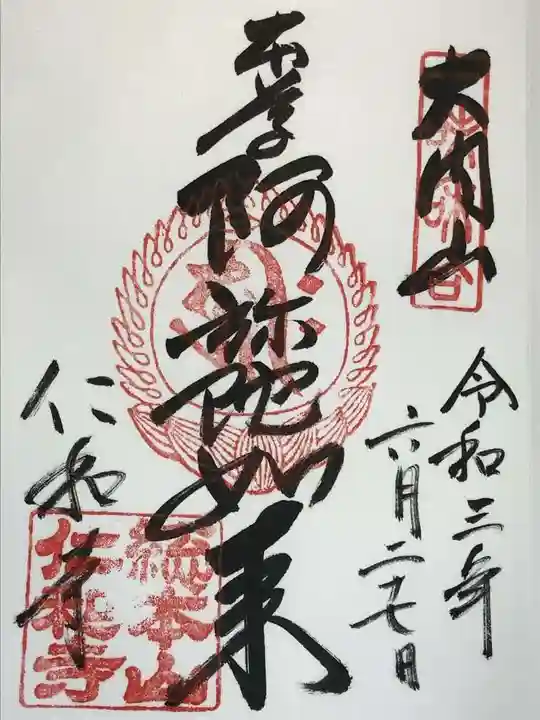 大内山
令和三年
六月二十七日
奉
阿弥陀如来
仁和寺
総本山
仁和寺